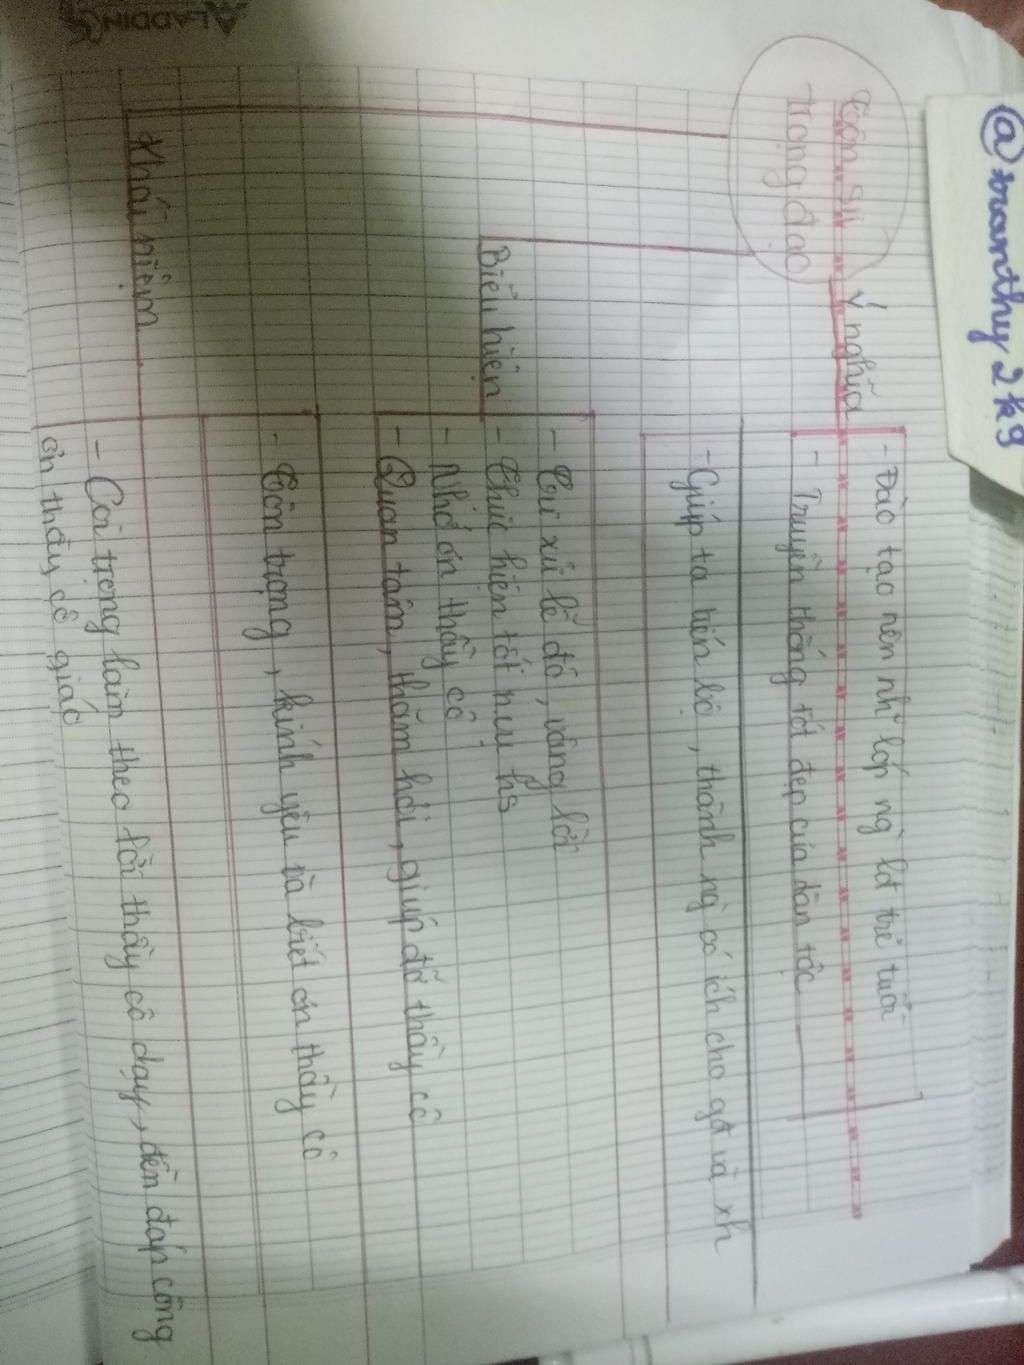 @tramthy2k9
ALADDIN
Tôn sư
trọng đạo
Ý nghĩa
- Đào tạo nên nh~ lớp ng` lđ trẻ tuổi
- Truyền thống tốt đẹp của dân tộc
- Giúp ta tiến bộ, thành ng` có ích cho gđ và xh
Biểu hiện
- Cư xử lễ độ, vâng lời
- Thực hiện tốt n.vụ hs
- Nhớ ơn thầy cô
- Quan tâm, thăm hỏi, giúp đỡ thầy cô
Khái niệm
- Tôn trọng, kính yêu và biết ơn thầy cô
- Coi trọng làm theo lời thầy cô dạy, đền đáp công
ơn thầy cô giáo